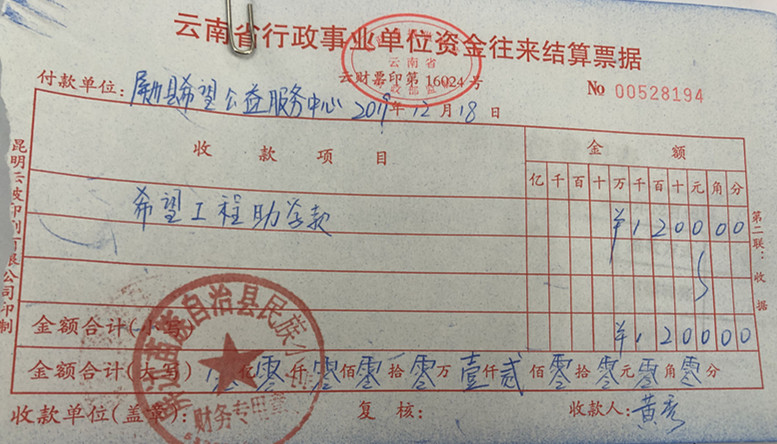 云南省行政事业单位资金往来结算票据
云南省
云财票印第 16024 号
财政部
付款单位: 励县希望公益服务中心 2019年12月18日
No 00528194
收款项目 金额
亿千百十万千百十元角分
希望工程助学款 ¥120000
金额合计(小写 ¥120000
金额合计(大写) 零亿零仟零佰零拾零万壹仟贰佰零拾零元零角零分
收款单位(盖章): 复核: 收款人: 黄秀
苗族自治县民族小
财务专用章
昆明云波印刷有限公司印制
第二联:收据